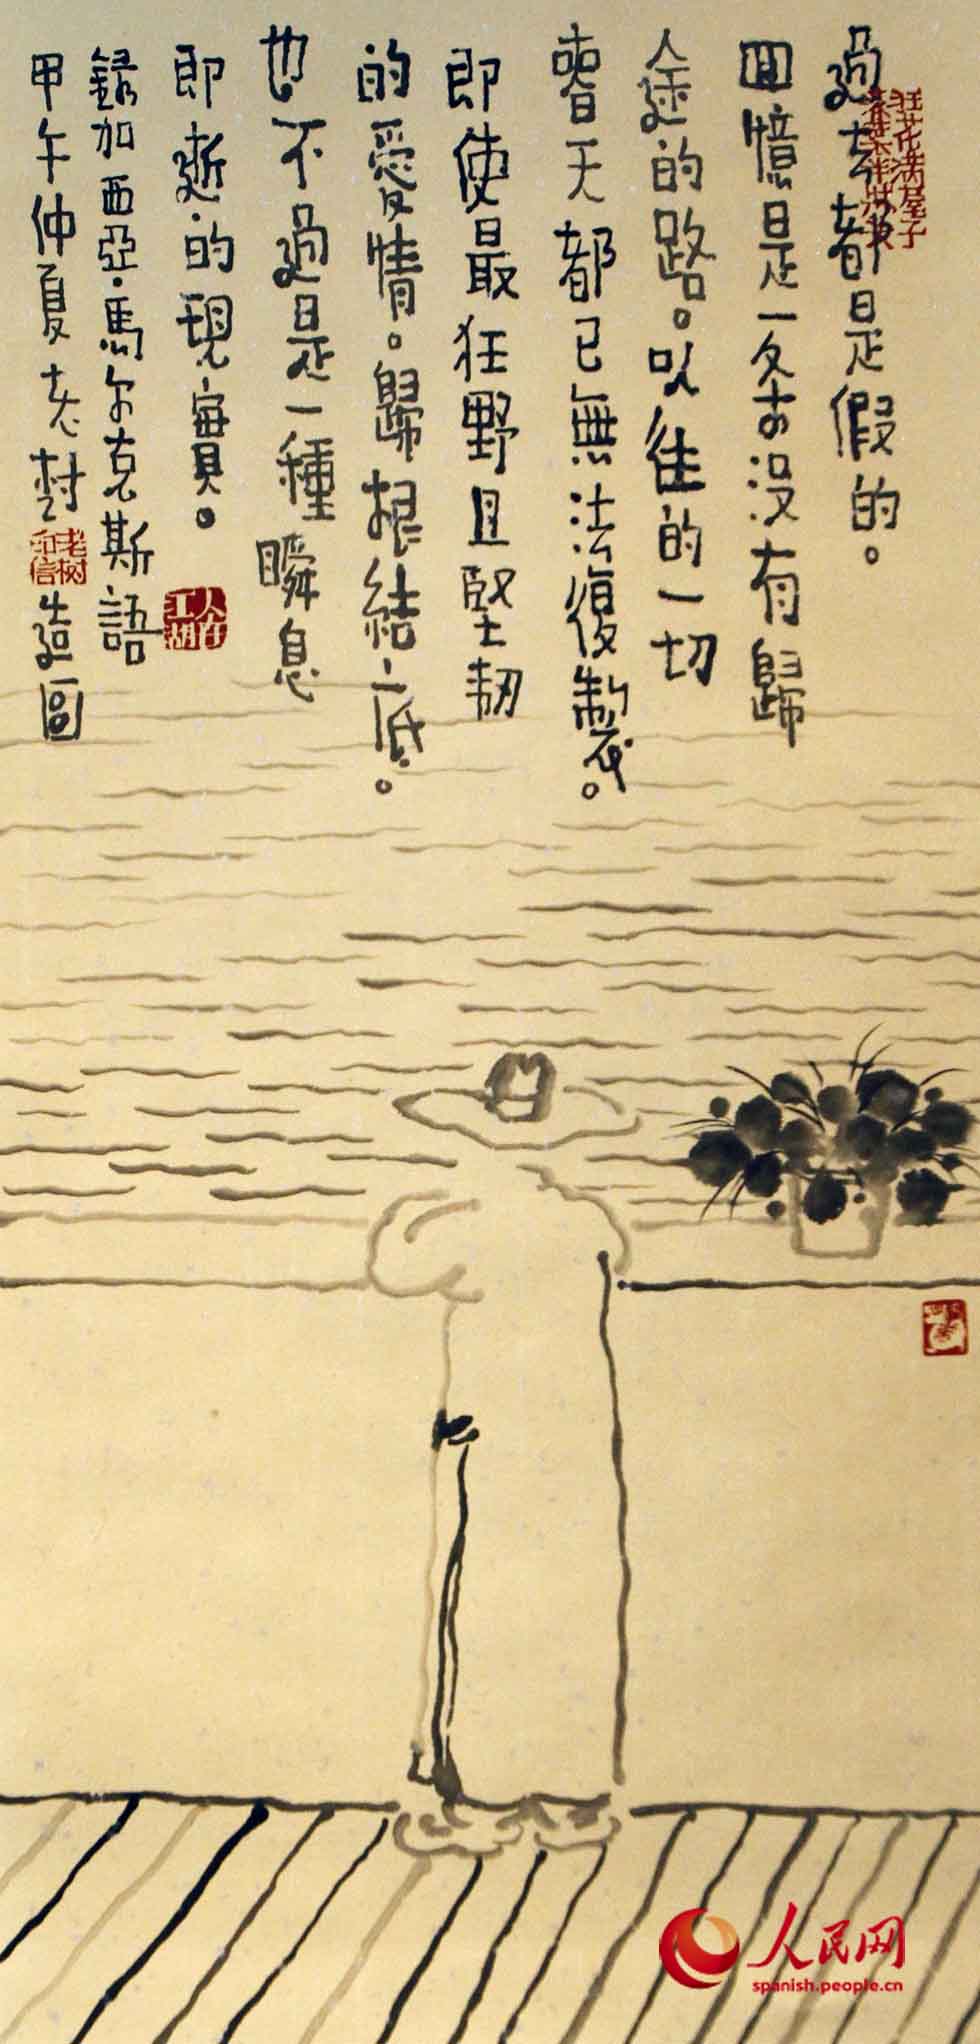 過去都是假的。
回憶是一条没有歸
途的路。以往的一切
春天都已無法復製。
即使最狂野且堅韌
的愛情。歸根結底。
也不過是一種瞬息
即逝的現實。
人在江湖
録加西亞·馬尔克斯語
甲午仲夏老樹造圖
老树
狂花满屋子
人民网
spanish.people.cn